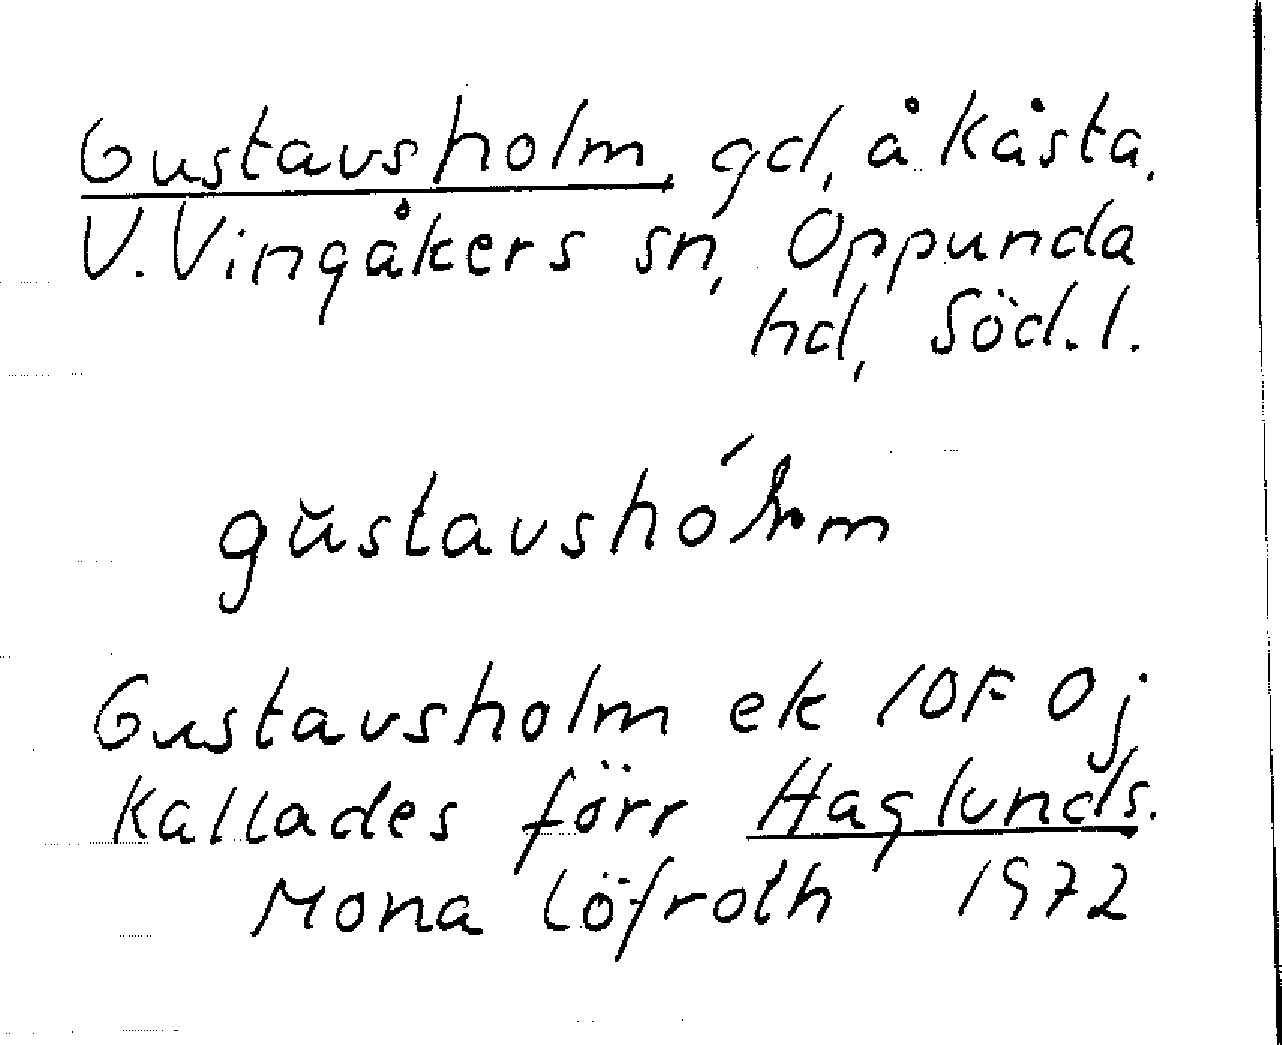 Gustavsholm, gd, å Kåsta,
V. Vingåkers sn, Oppunda
hd, Söd. l.
gŭstavshól̀m
Gustavsholm ek 10F 0j
Kallades förr Haglunds.
Mona Löfroth 1972